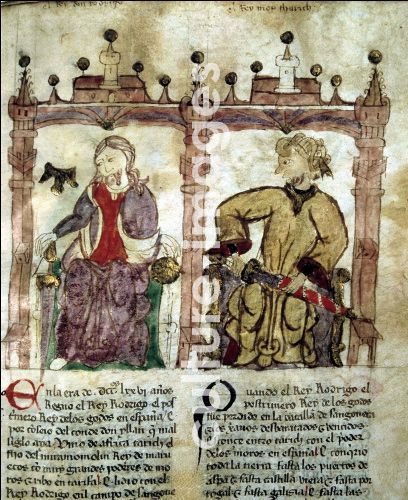 el Rey don rodrigo
el Rey mor tharich
En la era de dccº años
Regno el Rey Rodrigo el post
mero Rey delos godos en españa &
por cosejo del conde don yllan q mal
siglo aya vyno de africa tarich el
fijo del miramomolin Rey de marru
ecos co muy grandes poderes de mo
ros & ribo en tarifa & lidio con el
Rey Rodrigo en campo de sangone
Quando el Rey Rodrigo el
postrimero Rey de los godos
fue perdido en la batalla de sangone
& los xanos desbaratados & vencidos
estonce entro tarich con el poder
delos moros en españa & conqrio
toda la tierra fasta los puertos de
aspa & fasta castilla vieja & fasta por
togal & fasta galisia & fasta las
culture images